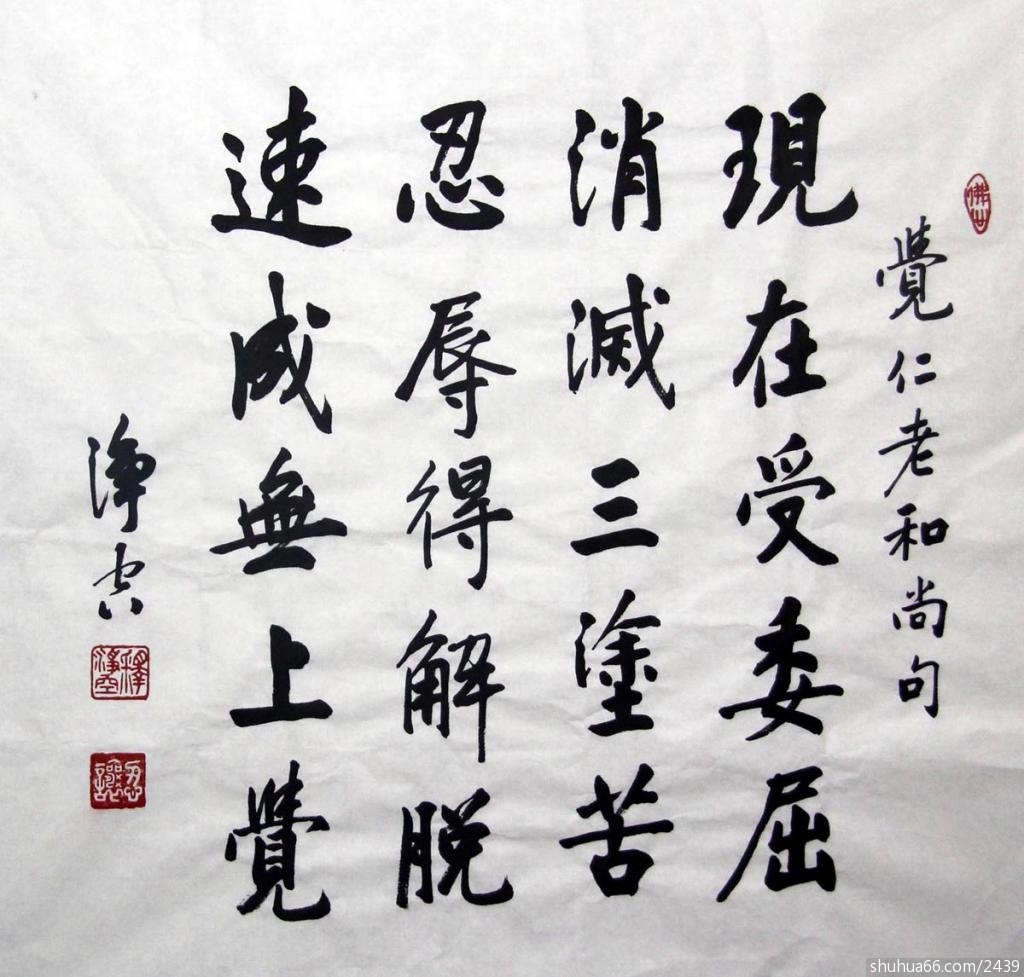 覺仁老和尚句
現在受委屈
消滅三塗苦
忍辱得解脫
速成無上覺
淨空
釋淨空
shuhua66.com/2439